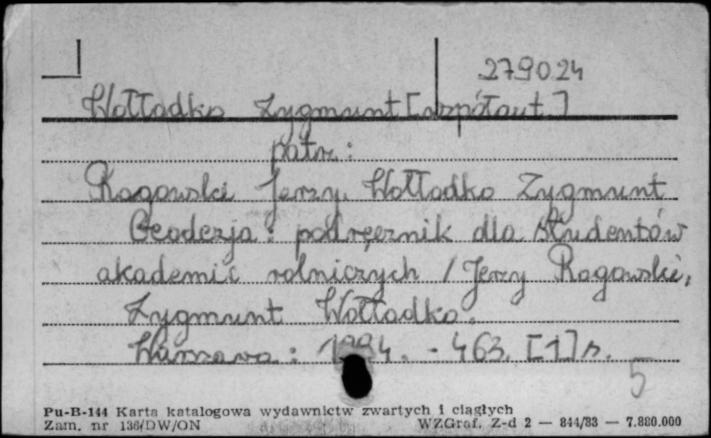 279024
Wołłodko Zygmunt [współaut.]
patrz:
Rogowski Jerzy, Wołłodko Zygmunt
Geodezja: podręcznik dla studentów
akademii rolniczych / Jerzy Rogowski,
Zygmunt Wołłodko.
Warszawa: 1994. - 463. [1] s.
5
Pu-B-144 Karta katalogowa wydawnictw zwartych i ciągłych
Zam. nr 136/DW/ON WZGraf. Z-d 2 — 844/83 — 7.880.000